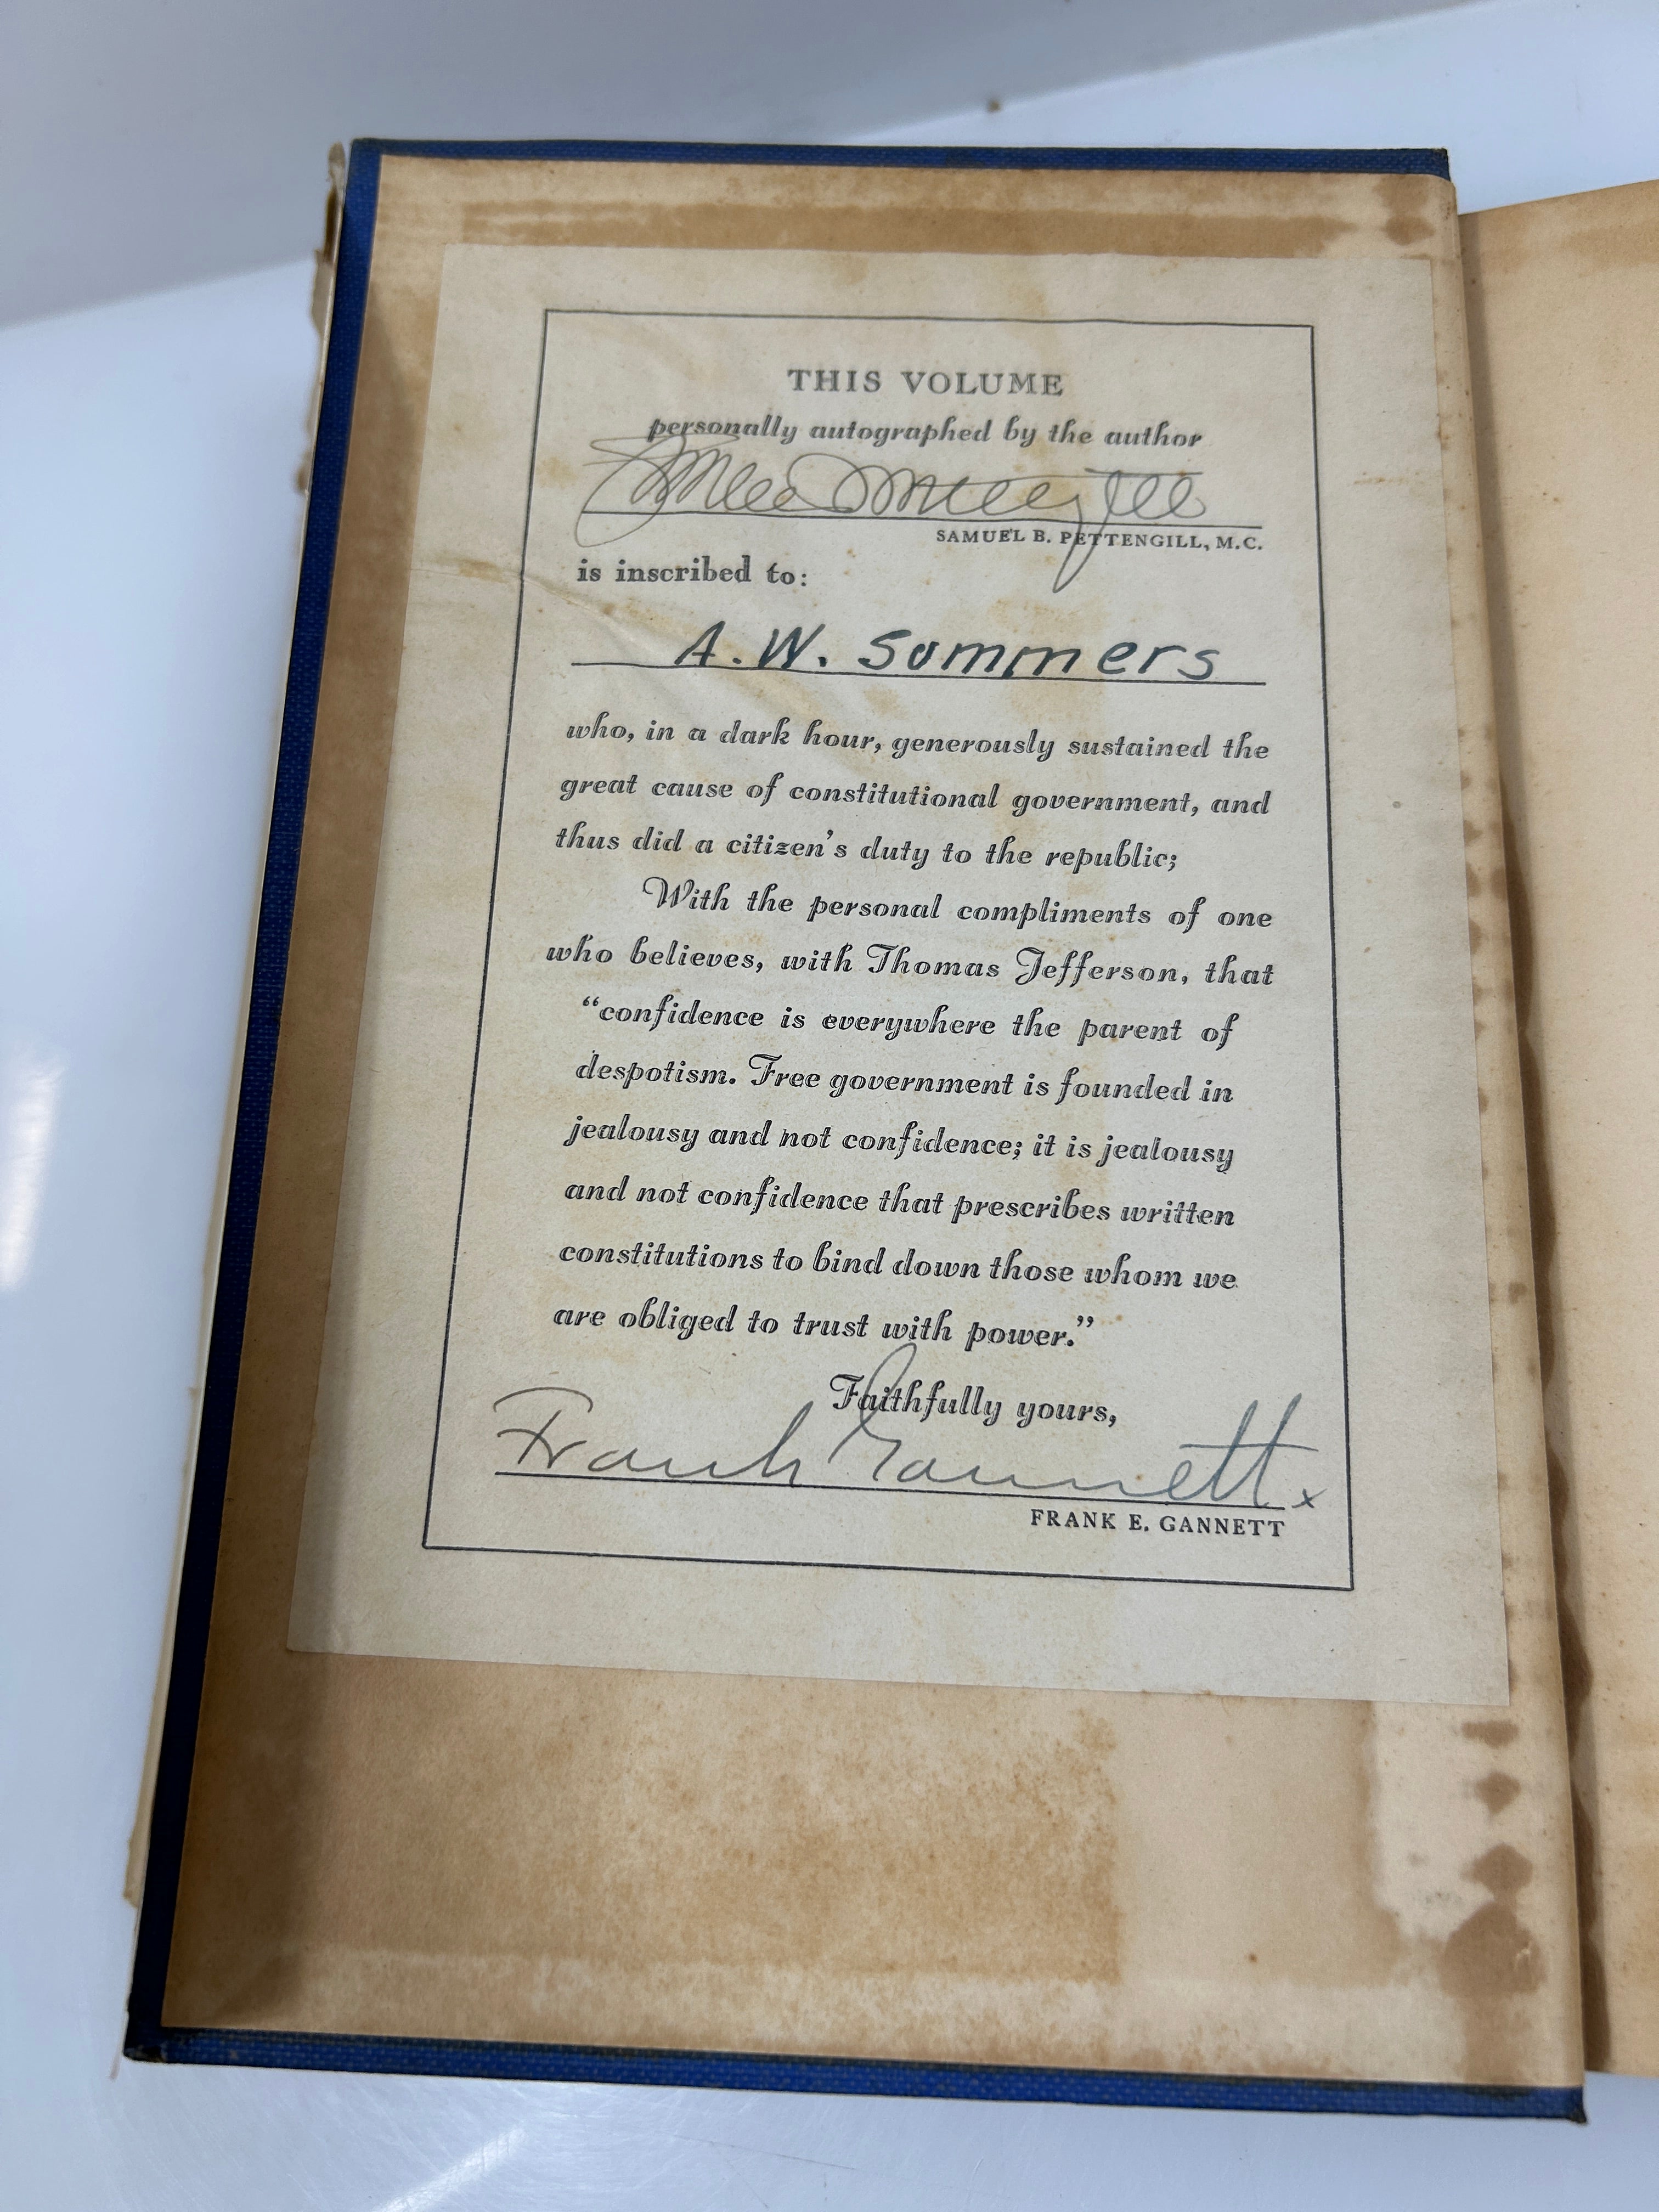 THIS VOLUME
personally autographed by the author
Samuel B Pettengill
SAMUEL B. PETTENGILL, M.C.
is inscribed to:
A. W. Sommers
who, in a dark hour, generously sustained the
great cause of constitutional government, and
thus did a citizen's duty to the republic;
With the personal compliments of one
who believes, with Thomas Jefferson, that
“confidence is everywhere the parent of
despotism. Free government is founded in
jealousy and not confidence; it is jealousy
and not confidence that prescribes written
constitutions to bind down those whom we
are obliged to trust with power.”
Faithfully yours,
Frank Gannett x
FRANK E. GANNETT